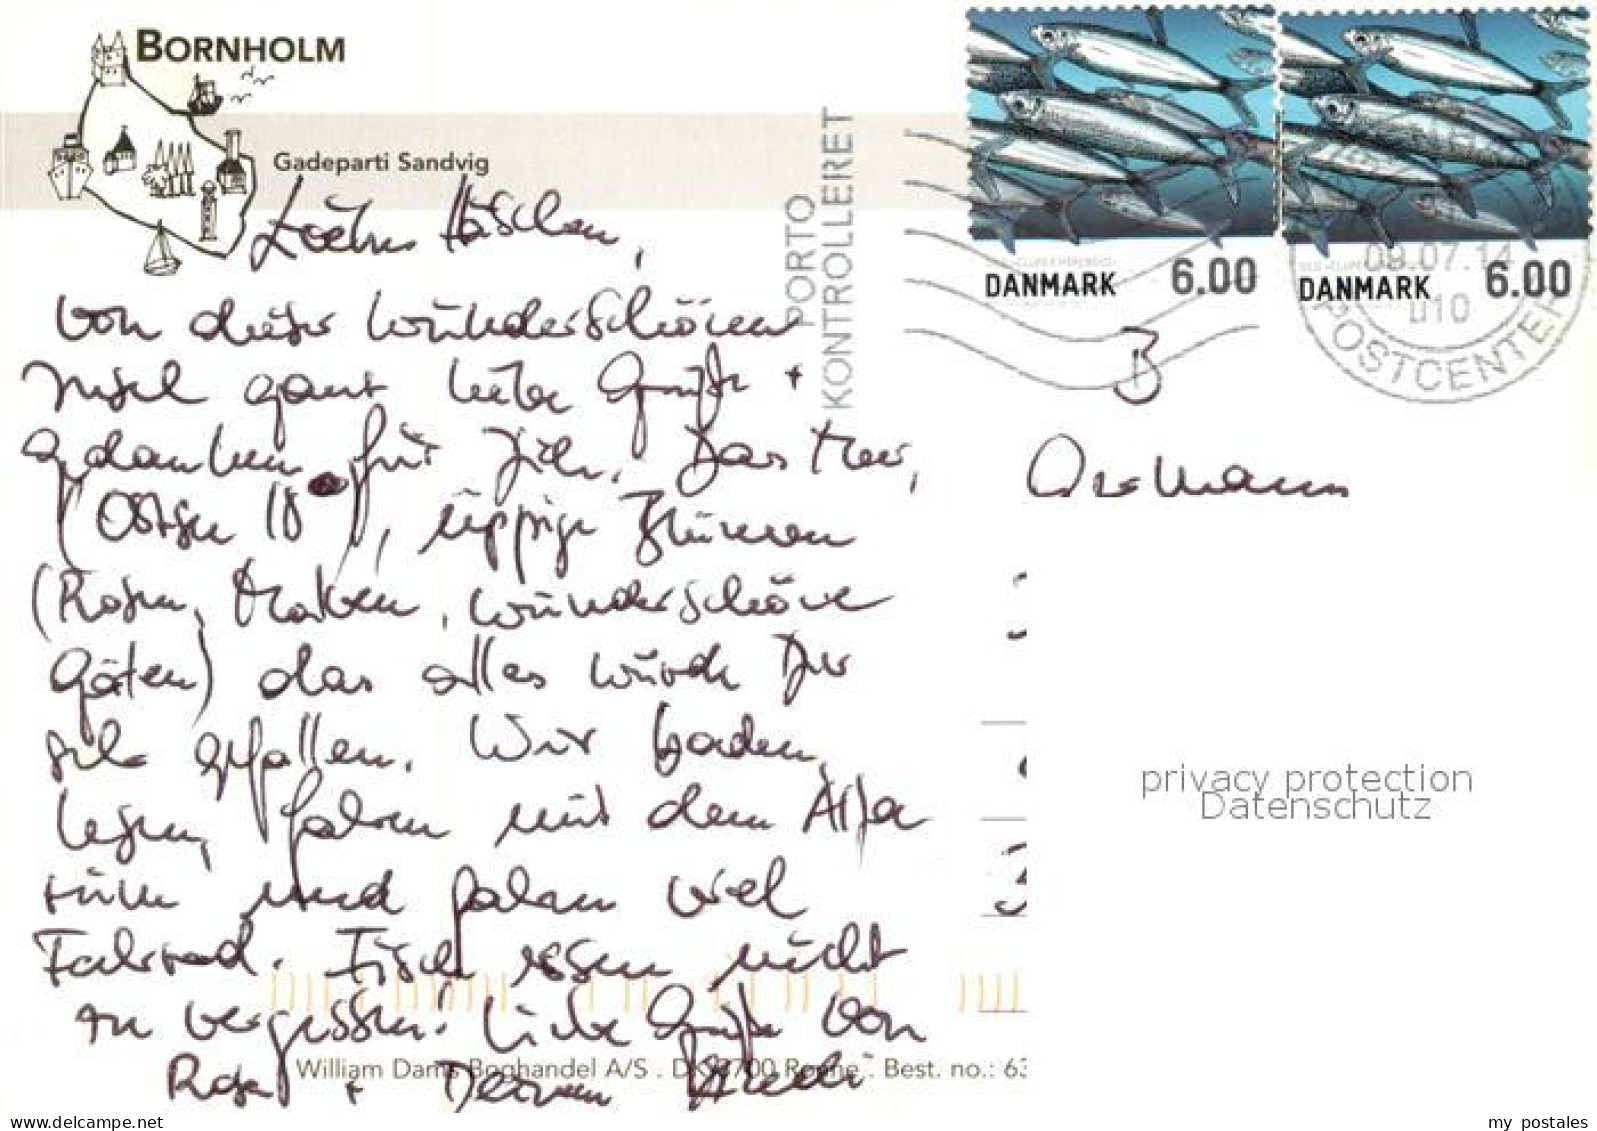 BORNHOLM
Gadeparti Sandvig
PORTO
KONTROLLERET
DANMARK 6.00
DANMARK 6.00
09.07.14
010
POSTCENTER
Häschen,
von dieser wünderschönen
Insel ganz liebe Grüße +
Gedanken für Dich. Das Meer,
(Ostsee 18°), üppige Blümen
(Rosen, Malven, wünderschöne
Gäten) das alles würde Dir
sehr gefallen. Wir baden,
lesen, fahren mit dem Alfa
rüm und fahren viel
Fahrrad. Fisch essen nicht
zu vergessen! Liebe Grüße von
Rosa +
William Dams Boghandel A/S . DK 3700 Rønne . Best. no.: 63
privacy protection
Datenschutz
www.delcampe.net
my_postales